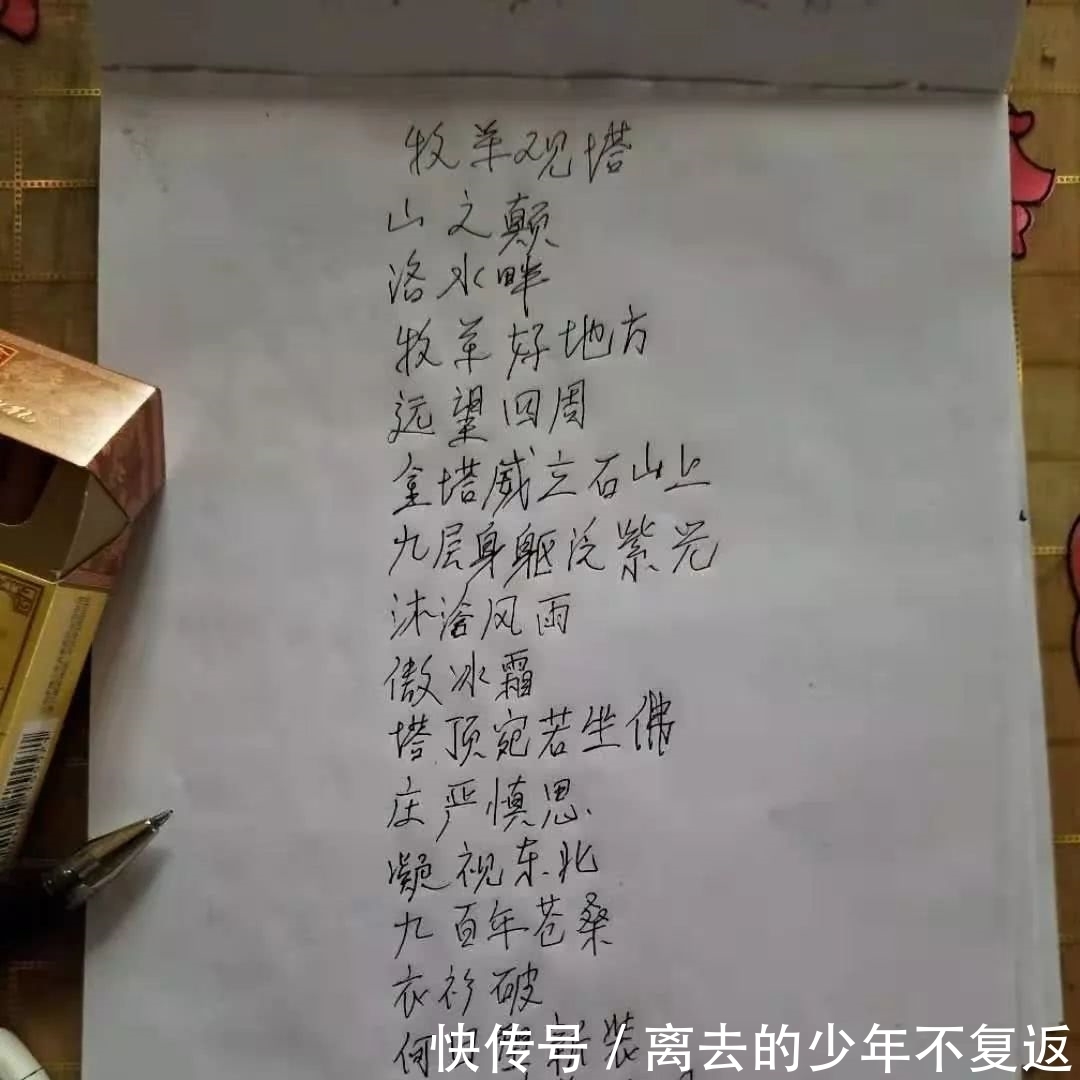 牧羊观塔
山之颠
洛水畔
牧羊好地方
远望四周
金塔威立石山上
九层身躯泛紫光
沐浴风雨
傲冰霜
塔顶宛若坐佛
庄严慎思
凝视东北
九百年苍桑
衣衫破
何 装
快传号 / 离去的少年不复返